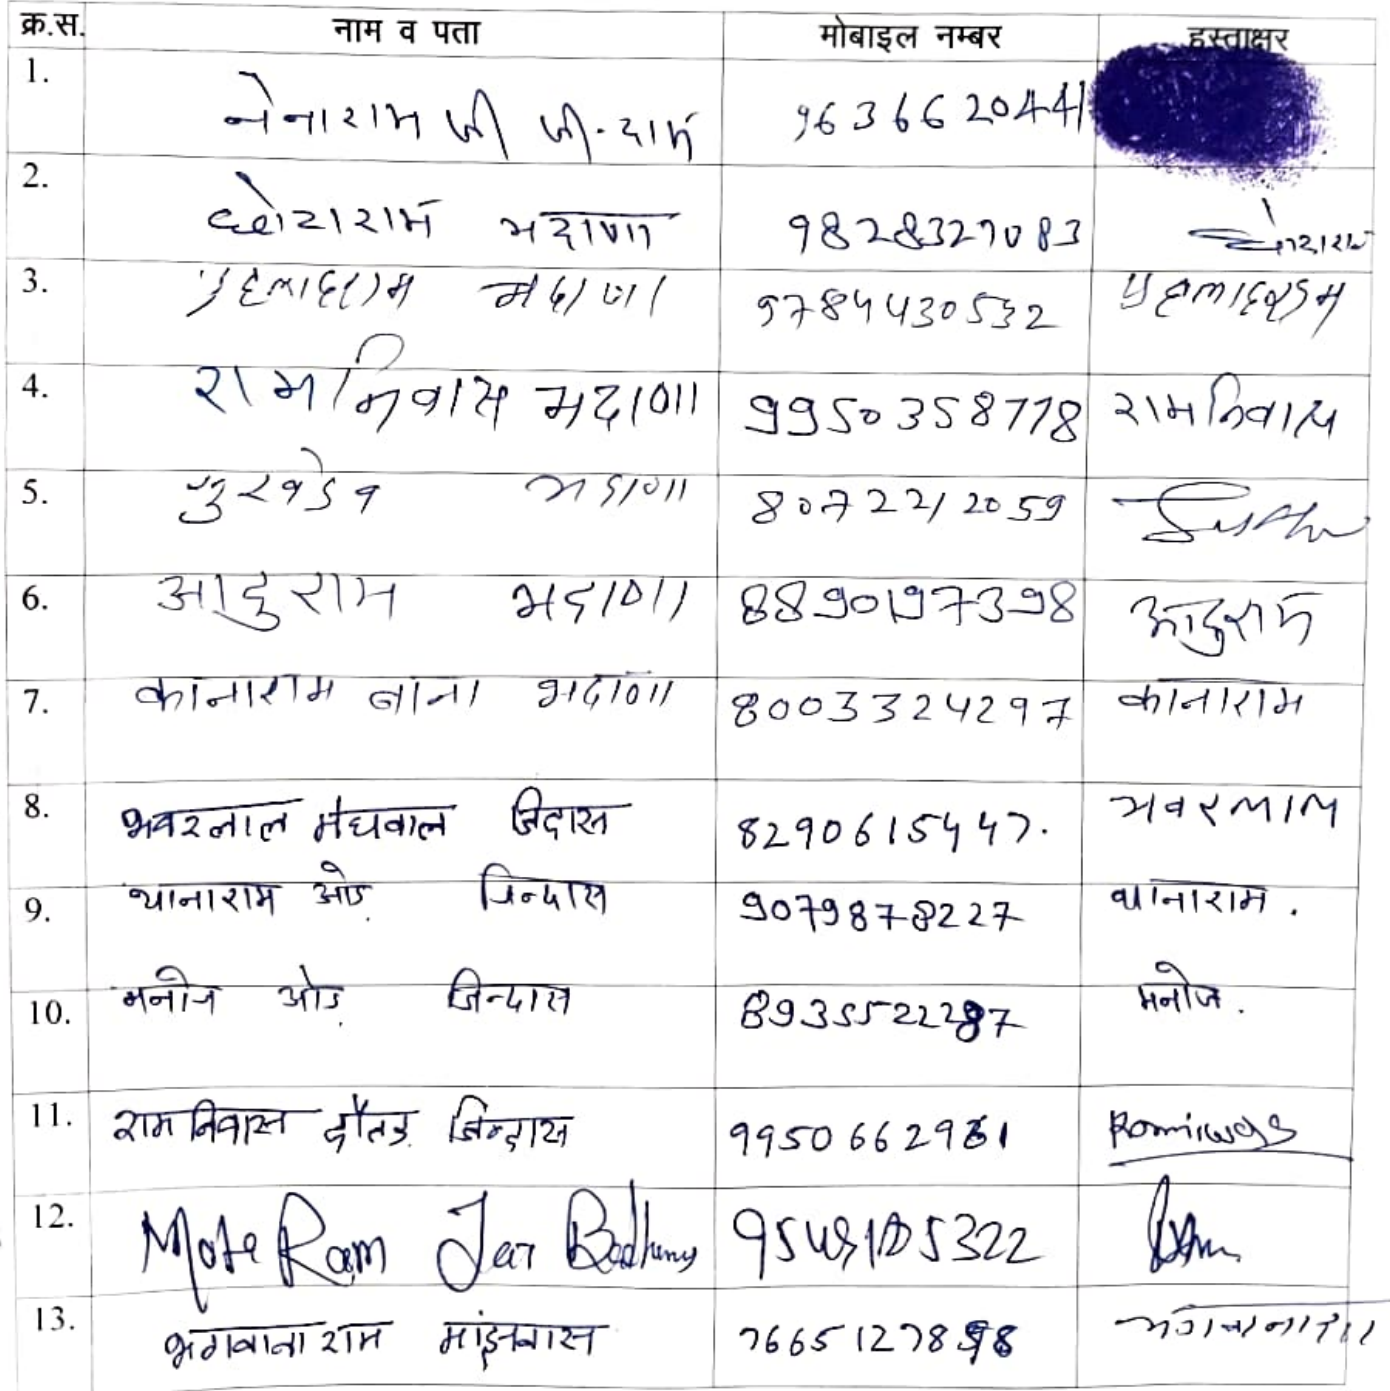 क्र.स. नाम व पता मोबाइल नम्बर हस्ताक्षर
1. नेनाराम जी 9636620441
2. छोटाराम भदाणा 9828327083
3. प्रहलादराम भदाणा 9784430532 प्रहलादराम
4. रामनिवास भदाणा 9950358778 रामनिवास
5. सुखदेव भदाणा 8072212059
6. आदुराम भदाणा 8890197398 आदुराम
7. कानाराम बाना भदाणा 8003324297 कानाराम
8. भवरलाल मेघवाल जिंदास 8290615447. भवरलाल
9. थानाराम ओड़ जिन्दास 9079878227 थानाराम.
10. मनोज ओड़ जिन्दास 8935522287 मनोज.
11. रामनिवास दौतड़ जिन्दास 9950662931 Ramniwas
12. Mote Ram 9549105322
13. भगवानाराम मांझवास 7665127898